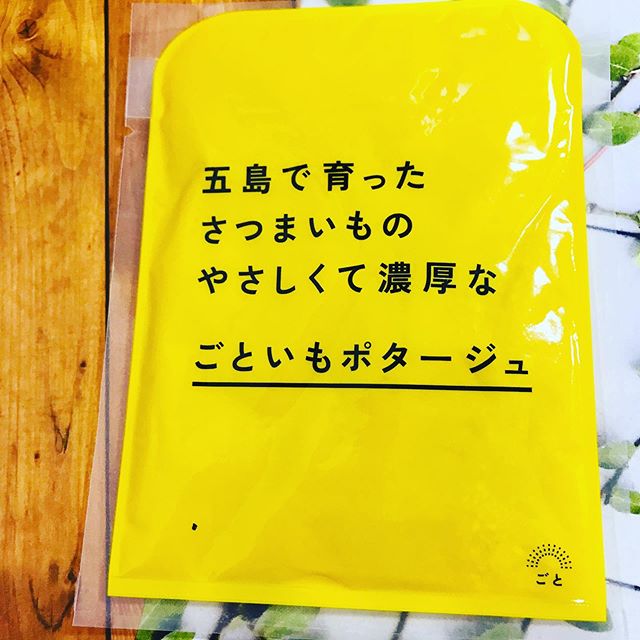 五島で育った
さつまいもの
やさしくて濃厚な
ごといもポタージュ
ごと